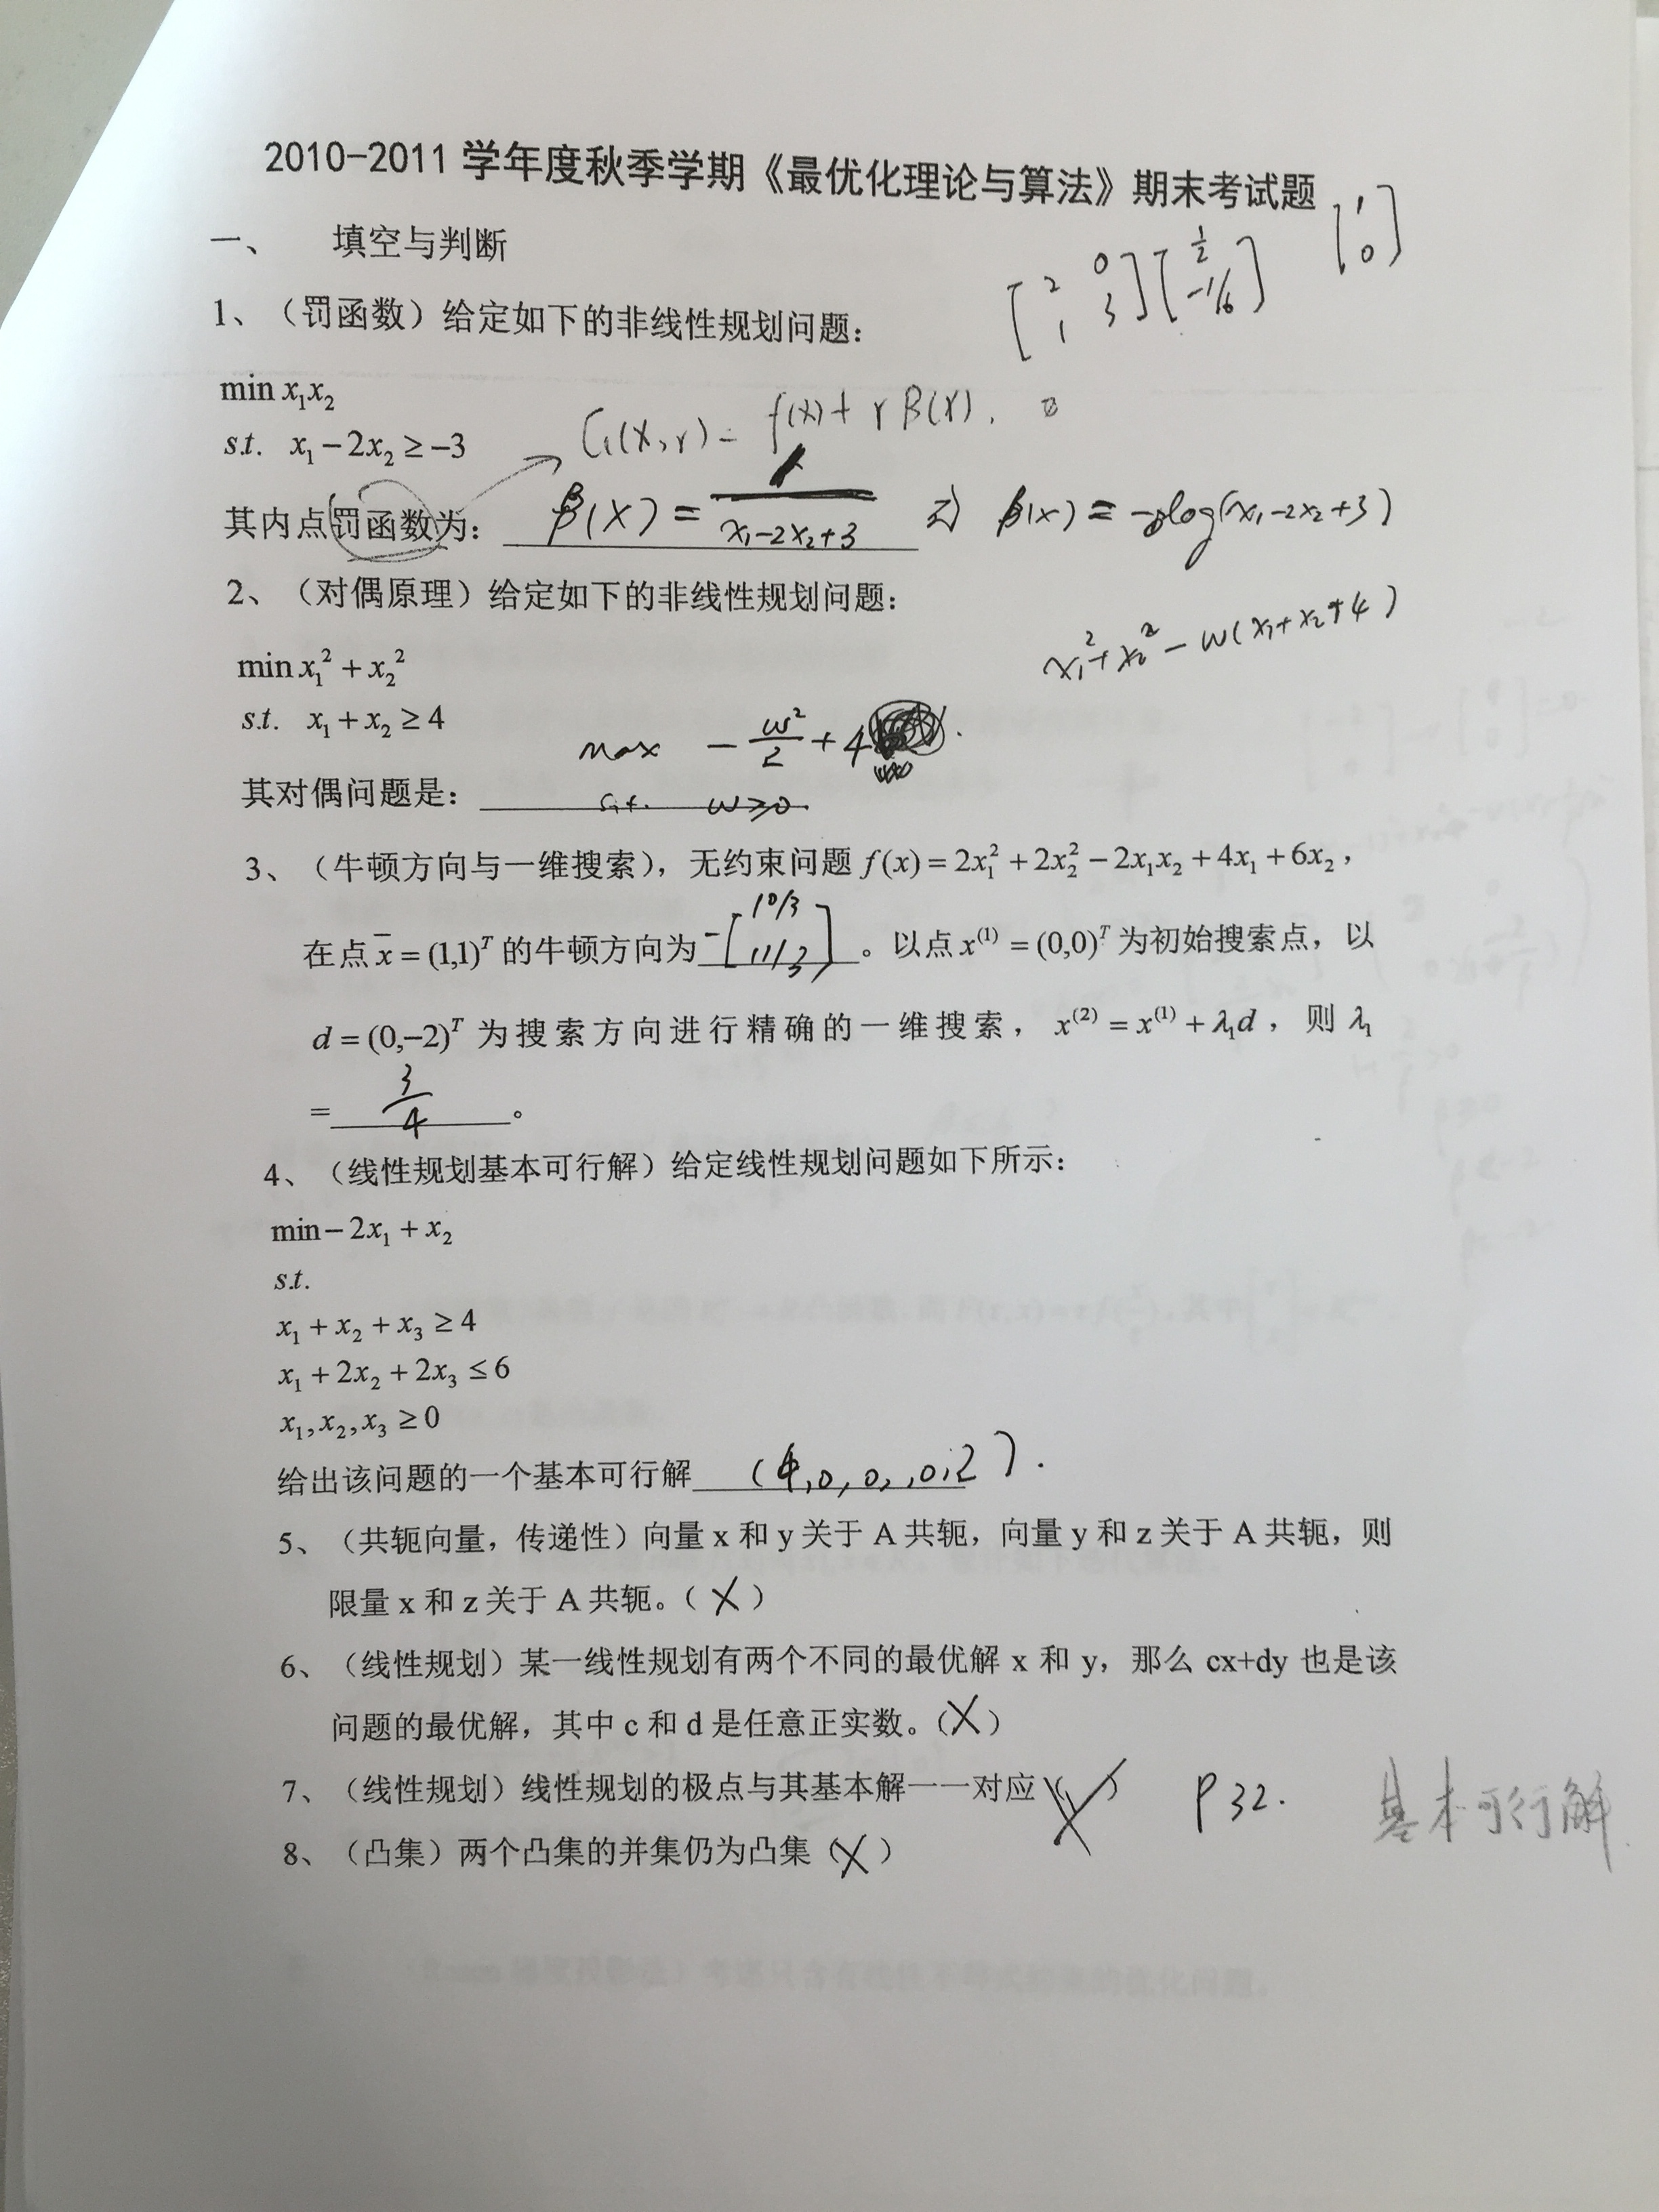 2010-2011 学年度秋季学期《最优化理论与算法》期末考试题
一、 填空与判断
[2 0 1 3] [1/2 -1/6] [1 0]
1、（罚函数）给定如下的非线性规划问题：
min x₁x₂
G(x,r) = f(x) + rB(x).
s.t. x₁ − 2x₂ ≥ −3
其内点罚函数为： β(x) = 1/(x₁-2x₂+3) 或 β(x) = -log(x₁-2x₂+3)
2、（对偶原理）给定如下的非线性规划问题：
x₁²+x₂² - w(x₁+x₂+4)
min x₁² + x₂²
s.t. x₁ + x₂ ≥ 4
max -w²/2 + 4
其对偶问题是： s.t. w≥0.
3、（牛顿方向与一维搜索），无约束问题 f(x) = 2x₁² + 2x₂² − 2x₁x₂ + 4x₁ + 6x₂，
在点 x̄ = (1,1)ᵀ 的牛顿方向为 -[10/3 11/3] 。以点 x⁽¹⁾ = (0,0)ᵀ 为初始搜索点，以
d = (0,−2)ᵀ 为搜索方向进行精确的一维搜索，x⁽²⁾ = x⁽¹⁾ + λ₁d，则 λ₁
= 3/4 。
4、（线性规划基本可行解）给定线性规划问题如下所示：
min − 2x₁ + x₂
s.t.
x₁ + x₂ + x₃ ≥ 4
x₁ + 2x₂ + 2x₃ ≤ 6
x₁, x₂, x₃ ≥ 0
给出该问题的一个基本可行解 (4,0,0,,0,2).
5、（共轭向量，传递性）向量 x 和 y 关于 A 共轭，向量 y 和 z 关于 A 共轭，则
限量 x 和 z 关于 A 共轭。（ X ）
6、（线性规划）某一线性规划有两个不同的最优解 x 和 y，那么 cx+dy 也是该
问题的最优解，其中 c 和 d 是任意正实数。（X）
7、（线性规划）线性规划的极点与其基本解一一对应（X） P32. 基本可行解
8、（凸集）两个凸集的并集仍为凸集（X）